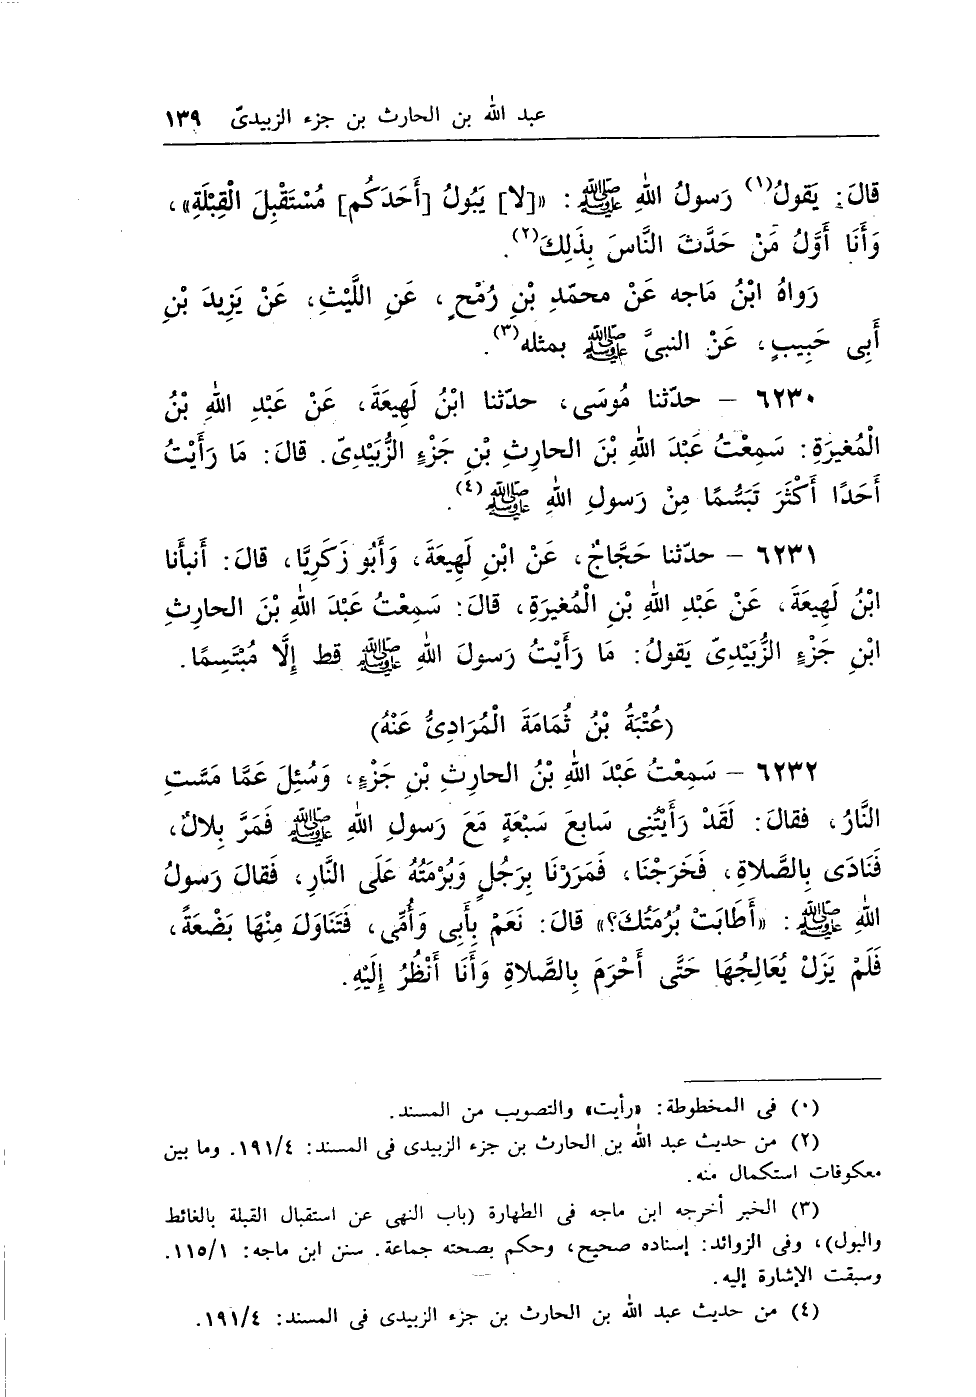 عبد الله بن الحارث بن جزء الزبيدىّ ١٣٩
قالَ: يَقولُ(١) رَسولُ اللهِ ﷺ: «[لا] يَبُولُ [أَحَدَكُم] مُسْتَقْبِلَ الْقِبْلَةِ»،
وَأَنَا أَوَّلُ مَنْ حَدَّثَ النَّاسَ بِذَلِكَ(٢).
رَواهُ ابْنُ مَاجه عَنْ محمّدِ بْنِ رُمْحٍ، عَنِ اللَّيْثِ، عَنْ يَزِيدَ بْنِ
أَبِى حَبِيبٍ، عَنْ النبىَّ ﷺ بمثله(٣).
٦٢٣٠ – حدّثنا مُوسَى، حدّثنا ابْنُ لَهِيعَةَ، عَنْ عَبْدِ اللهِ بْنُ
الْمُغيرَةِ: سَمِعْتُ عَبْدَ اللهِ بْنَ الحارِثِ بْنِ جَزْءِ الزُّبَيْدِىّ. قالَ: مَا رَأَيْتُ
أَحَدًا أَكْثَرَ تَبَسُّمًا مِنْ رَسولِ اللهِ ﷺ(٤).
٦٢٣١ – حدّثنا حَجَّاجٌ، عَنْ ابْنِ لَهِيعَةَ، وَأَبُو زَكَرِيَّا، قالَ: أَنبأَنا
ابْنُ لَهِيعَةَ، عَنْ عَبْدِ اللهِ بْنِ الْمُغيرَةِ، قالَ: سَمِعْتُ عَبْدَ اللهِ بْنَ الحارِثِ
ابْنِ جَزْءٍ الزُّبَيْدِىّ يَقولُ: مَا رَأَيْتُ رَسولَ اللهِ ﷺ قط إِلَّا مُبْتَسِمًا.
(عُتْبَةُ بْنُ ثُمَامَةَ الْمُرَادِىُّ عَنْهُ)
٦٢٣٢ – سَمِعْتُ عَبْدَ اللهِ بْنُ الحارِثِ بْنِ جَزْءٍ، وَسُئِلَ عَمَّا مَسَّت
النَّارُ، فقالَ: لَقَدْ رَأَيْتُنِى سَابِعَ سَبْعَةٍ مَعَ رَسولِ اللهِ ﷺ فَمَرَّ بِلالٌ،
فَنَادَى بِالصَّلاةِ، فَخَرَجْنَا، فَمَرَرْنَا بِرَجُلٍ وَبُرْمَتُهُ عَلَى النَّارِ، فَقالَ رَسولُ
اللهِ ﷺ: «أَطَابَتْ بُرْمَتُكَ؟» قالَ: نَعَمْ بِأَبِى وَأُمِّى، فَتَنَاوَلَ مِنْهَا بَضْعَةً،
فَلَمْ يَزَلْ يُعَالِجُهَا حَتَّى أَحْرَمَ بِالصَّلاةِ وَأَنَا أَنْظُرُ إِلَيْهِ.
(١) فى المخطوطة: «رأيت» والتصويب من المسند.
(٢) من حديث عبد الله بن الحارث بن جزء الزبيدى فى المسند: ١٩١/٤. وما بين
معكوفات استكمال منه.
(٣) الخبر أخرجه ابن ماجه فى الطهارة (باب النهى عن استقبال القبلة بالغائط
والبول)، وفى الزوائد: إسناده صحيح، وحكم بصحته جماعة. سنن ابن ماجه: ١١٥/١.
وسبقت الإشارة إليه.
(٤) من حديث عبد الله بن الحارث بن جزء الزبيدى فى المسند: ١٩١/٤.